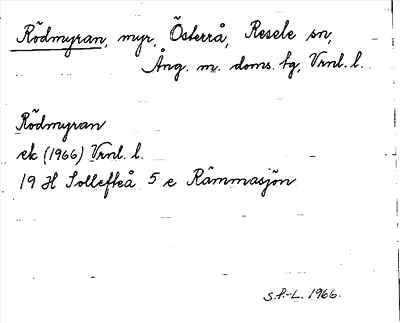 Rödmyran, myr, Österrå, Resele sn,
Ång. m. doms. tg, Vrnl. l.
Rödmyran
ek (1966) Vrnl. l.
19 H Sollefteå 5 e Råmmasjön
S.P.-L. 1966.